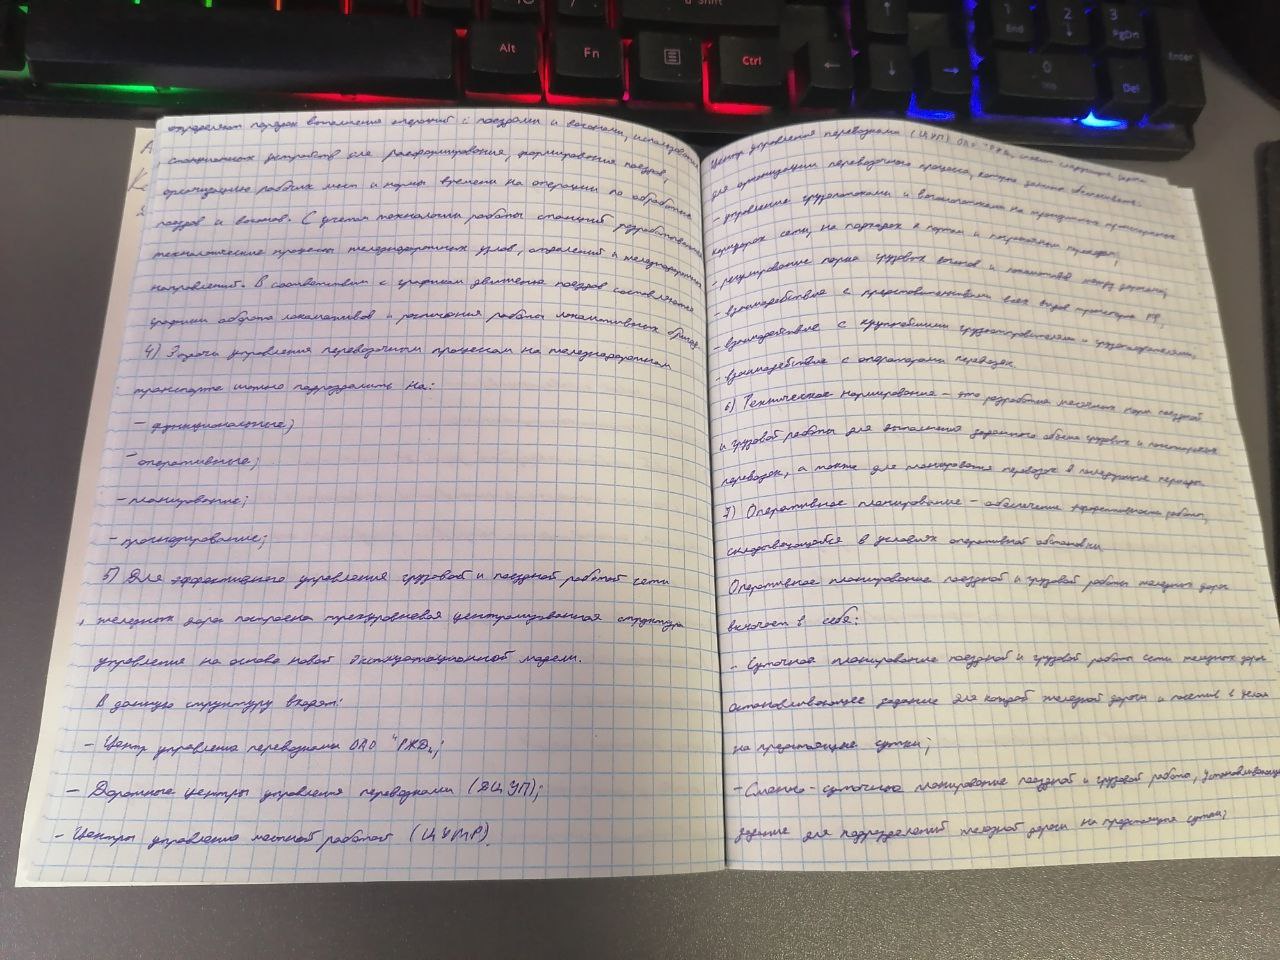 Alt
Fn
Ctrl
Shift
1
End
2
3
PgDn
Enter
0
Ins
Del
определяют порядок выполнения операций с поездами и вагонами, использование
станционных устройств для расформирования, формирования поездов,
организацию рабочих мест и нормы времени на операции по обработке
поездов и вагонов. С учетом технологии работы станций разрабатываются
технологические процессы железнодорожных узлов, отделений и железнодорожных
направлений. В соответствии с графиком движения поездов составляются
графики оборота локомотивов и расписания работы локомотивных бригад.
4) Задачи управления перевозочным процессом на железнодорожном
транспорте можно подразделить на:
- функциональные;
- оперативные;
- планирование;
- прогнозирование;
5) Для эффективного управления грузовой и поездной работой сети
железных дорог построена трехуровневая централизованная структура
управления на основе новой эксплуатационной модели.
В данную структуру входят:
- Центр управления перевозками ОАО "РЖД";
- Дорожные центры управления перевозками (ДЦУП);
- Центры управления местной работой (ЦУМР).
Центр управления перевозками (ЦУП) ОАО "РЖД" имеет следующие задачи
для организации перевозочного процесса, которые должны обеспечивать:
- управление грузопотоками и вагонопотоками на
коридорах сети, на подходах к портам и пограничным переходам;
- регулирование парка грузовых вагонов и локомотивов между дорогами;
- взаимодействие с представителями всех видов транспорта РФ;
- взаимодействие с крупнейшими грузоотправителями и грузополучателями;
- взаимодействие с операторами перевозок.
6) Техническое нормирование - это разработка месячных норм поездной
и грузовой работы для выполнения заданного объема грузовых и пассажирских
перевозок, а также для планирования перевозок в последующие периоды.
7) Оперативное планирование - обеспечение эффективности работы,
складывающейся в условиях оперативной обстановки.
Оперативное планирование поездной и грузовой работы железных дорог
включает в себя:
- Суточное планирование поездной и грузовой работы сети железных дорог
устанавливающее задание для каждой железной дороги и
на предстоящие сутки;
- Сменно-суточное планирование поездной и грузовой работы, устанавливающее
задание для подразделений железной дороги на предстоящие сутки;